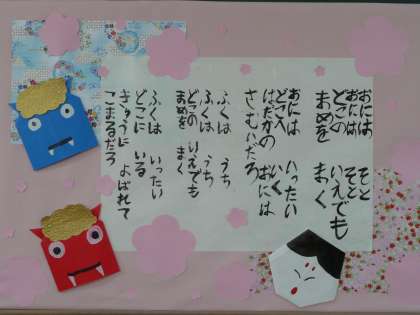 おには　そと
おには　そと
どこの　いえでも
まめを　まく
おには　いったい
どこへ　いく
はだかの　おには
さむいだろ
ふくは　うち
ふくは　うち
どこの　いえでも
まめを　まく
ふくは　いったい
どこに　いる
きゅうに　よばれて
こまるだろ